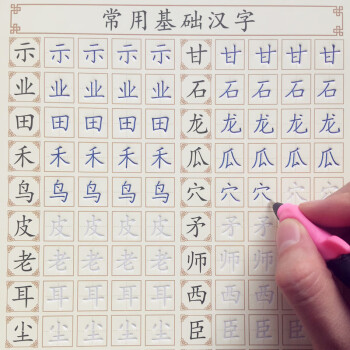 常用基础汉字
示 示 示 示 示 甘 甘 甘 甘 甘
业 业 业 业 业 石 石 石 石 石
田 田 田 田 田 龙 龙 龙 龙 龙
禾 禾 禾 禾 禾 瓜 瓜 瓜 瓜 瓜
鸟 鸟 鸟 鸟 鸟 穴 穴 穴 穴 穴
皮 皮 皮 皮 皮 矛 矛 矛
老 老 老 老 老 师 师 师
耳 耳 耳 耳 耳 西 西 西
尘 尘 尘 尘 尘 臣 臣 臣